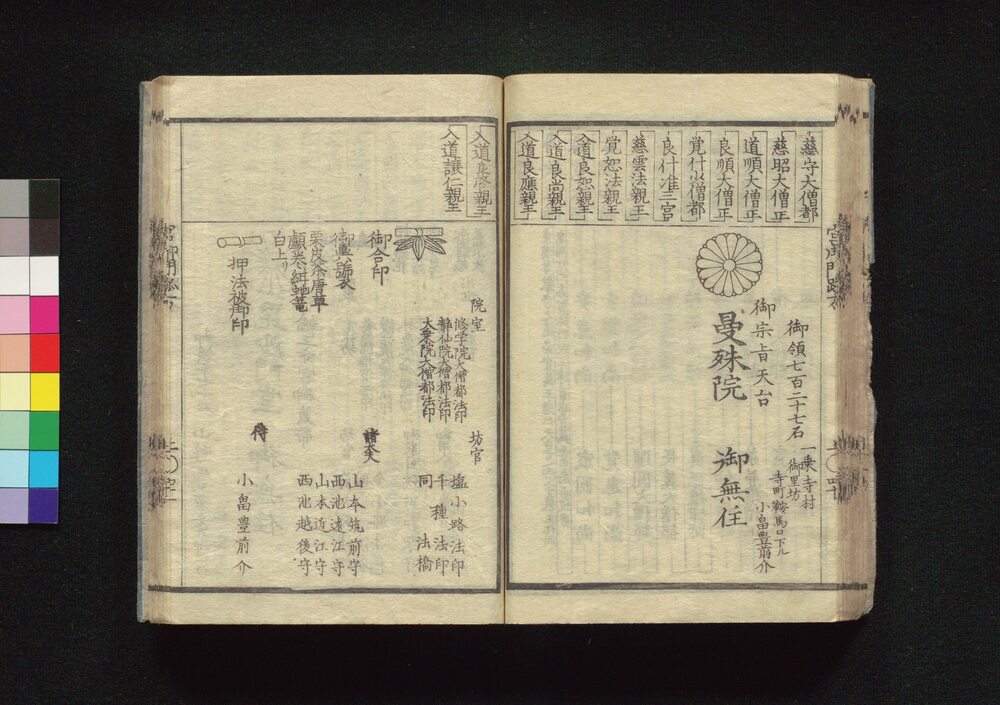 慈守大僧都
慈昭大僧正
道順大僧正
良順大僧正
覚什少僧都
良什准三宮
慈雲法親王
覚恕法親王
入道良恕親王
入道良尚親王
入道良應親王
御領七百二十七石
一乗寺村
御里坊
寺町鞍馬口下ル
小畠豊前介
御宗旨天台
曼殊院
御無住
入道良啓親王
入道譲仁親王
院室
修学院大僧都法印
静仙院大僧都法印
大乗院大僧都法印
坊官
塩小路法印
千種法印
同法橋
諸大夫
山本筑前守
西池遠江守
山本近江守
西池越後守
侍
小畠豊前介
御合印
栗皮茶唐草
白上リ
押法被御印